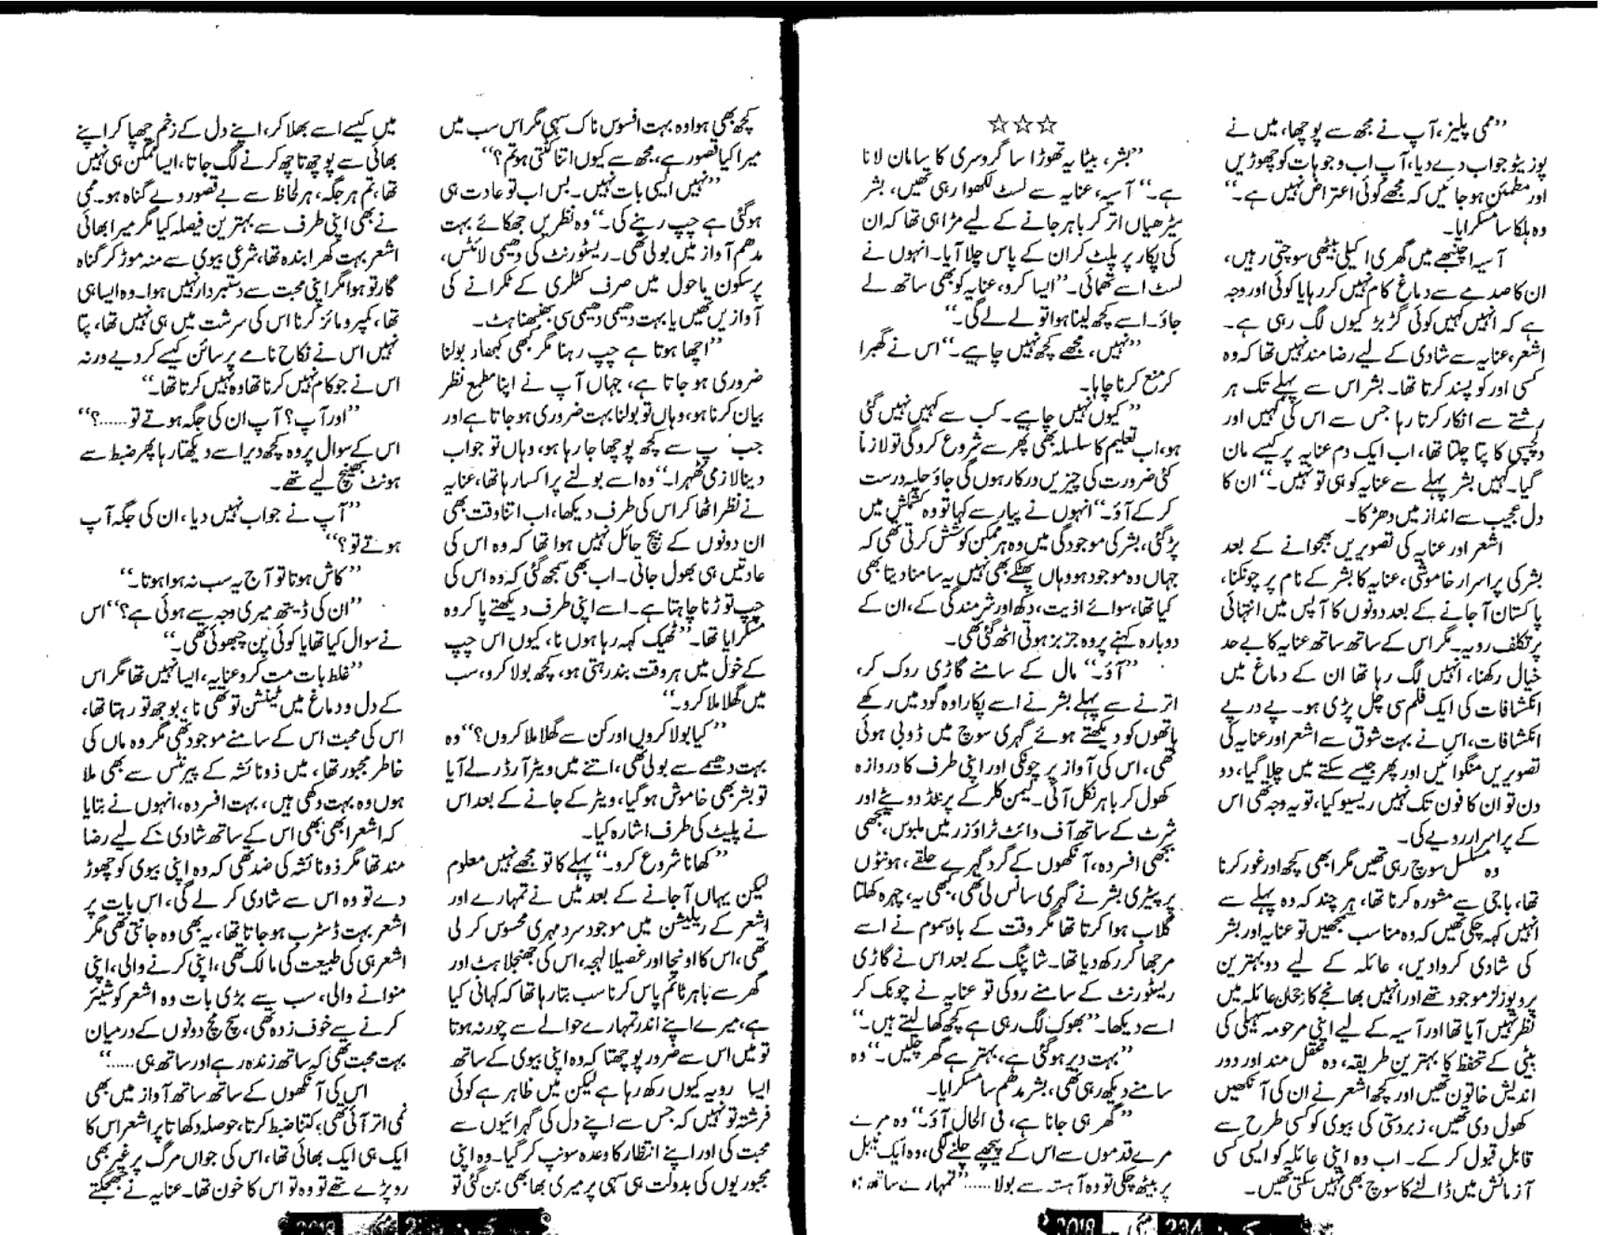 ”ممی پلیز، آپ نے مجھ سے پوچھا، میں نے
پوزیٹو جواب دے دیا، آپ اب وجوہات کو چھوڑیں
اور مطمئن ہو جائیں کہ مجھے کوئی اعتراض نہیں ہے۔“
وہ ہلکا سا مسکرایا۔
آسیہ اچنبھے میں گھری اکیلی بیٹھی سوچتی رہیں،
ان کا صدمے سے دماغ کام نہیں کر رہا یا کوئی اور وجہ
ہے کہ انہیں کہیں کوئی گڑبڑ کیوں لگ رہی ہے۔
اشعر، عنایہ سے شادی کے لیے رضامند نہیں تھا کہ وہ
کسی اور کو پسند کرتا تھا۔ بشر اس سے پہلے تک ہر
رشتے سے انکار کرتا رہا جس سے اس کی کہیں اور
دلچسپی کا پتا چلتا تھا، اب ایک دم عنایہ پر کیسے مان
گیا۔ کہیں بشر پہلے سے عنایہ کو ہی تو نہیں۔“ ان کا
دل عجیب سے انداز میں دھڑکا۔
اشعر اور عنایہ کی تصویریں بھجوانے کے بعد
بشر کی پراسرار خاموشی، عنایہ کا بشر کے نام پر چونکنا،
پاکستان آ جانے کے بعد دونوں کا آپس میں انتہائی
پرتکلف رویہ۔ مگر اس کے ساتھ ساتھ عنایہ کا بے حد
خیال رکھنا، انہیں لگ رہا تھا ان کے دماغ میں
انکشافات کی ایک فلم سی چل پڑی ہو۔ پے در پے
انکشافات، اس نے بہت شوق سے اشعر اور عنایہ کی
تصویریں منگوائیں اور پھر جیسے سکتے میں چلا گیا، دو
دن تو ان کا فون تک نہیں ریسیو کیا، تو یہ وجہ تھی اس
کے پراسرار رویے کی۔
وہ مسلسل سوچ رہی تھیں مگر ابھی کچھ اور غور کرنا
تھا، باجی سے مشورہ کرنا تھا، ہر چند کہ وہ پہلے سے
انہیں کہہ چکی تھیں کہ وہ مناسب سمجھیں تو عنایہ اور بشر
کی شادی کروا دیں، عائلہ کے لیے دو بہترین
پروپوزلز موجود تھے اور انہیں بھانجے کا رجحان عائلہ میں
نظر نہیں آیا تھا اور آسیہ کے لیے اپنی مرحومہ سہیلی کی
بیٹی کے تحفظ کا بہترین طریقہ، وہ عقل مند اور دور
اندیش خاتون تھیں اور کچھ اشعر نے ان کی آنکھیں
کھول دی تھیں، زبردستی کی بیوی کو کسی طرح سے
قابل قبول کر کے۔ اب وہ اپنی عائلہ کو ایسی کسی
آزمائش میں ڈالنے کا سوچ بھی نہیں سکتی تھیں۔
☆☆☆
”بشر، بیٹا یہ تھوڑا سا گروسری کا سامان لانا
ہے۔“ آسیہ، عنایہ سے لسٹ لکھوا رہی تھیں، بشر
سیڑھیاں اتر کر باہر جانے کے لیے مڑا ہی تھا کہ ان
کی پکار پر پلٹ کر ان کے پاس چلا آیا۔ انہوں نے
لسٹ اسے تھمائی۔ ”ایسا کرو، عنایہ کو بھی ساتھ لے
جاؤ۔ اسے کچھ لینا ہوا تو لے لے گی۔“
”نہیں، مجھے کچھ نہیں چاہیے۔“ اس نے گھبرا
کر منع کرنا چاہا۔
”کیوں نہیں چاہیے۔ کب سے کہیں نہیں گئی
ہو، اب تعلیم کا سلسلہ بھی پھر سے شروع کرو گی تو لازماً
کئی ضرورت کی چیزیں درکار ہوں گی جاؤ حلیہ درست
کر کے آؤ۔“ انہوں نے پیار سے کہا تو وہ کشمکش میں
پڑ گئی، بشر کی موجودگی میں وہ ہر ممکن کوشش کرتی تھی کہ
جہاں وہ موجود ہو وہاں پھٹکے بھی نہیں یہ سامنا دیتا بھی
کیا تھا، سوائے اذیت، دکھ اور شرمندگی کے، ان کے
دوبارہ کہنے پر وہ جزبز ہوتی اٹھ گئی تھی۔
”آؤ۔“ مال کے سامنے گاڑی روک کر،
اترنے سے پہلے بشر نے اسے پکارا وہ گود میں رکھے
ہاتھوں کو دیکھتے ہوئے گہری سوچ میں ڈوبی ہوئی
تھی، اس کی آواز پر چونکی اور اپنی طرف کا دروازہ
کھول کر باہر نکل آئی۔ لیمن کلر کے پرنٹڈ دوپٹے اور
شرٹ کے ساتھ آف وائٹ ٹراؤزر میں ملبوس، بجھی
بجھی افسردہ، آنکھوں کے گرد گہرے حلقے، ہونٹوں
پر پپڑی بشر نے گہری سانس لی تھی، کبھی یہ چہرہ کھلتا
گلاب ہوا کرتا تھا مگر وقت کے بادسموم نے اسے
مرجھا کر رکھ دیا تھا۔ شاپنگ کے بعد اس نے گاڑی
ریسٹورنٹ کے سامنے روکی تو عنایہ نے چونک کر
اسے دیکھا۔ ”بھوک لگ رہی ہے کچھ کھا لیتے ہیں۔“
”بہت دیر ہو گئی ہے، بہتر ہے گھر چلیں۔“ وہ
سامنے دیکھ رہی تھی، بشر مدھم سا مسکرایا۔
”گھر ہی جانا ہے، فی الحال آؤ۔“ وہ مرے
مرے قدموں سے اس کے پیچھے چلنے لگی، وہ ایک ٹیبل
پر بیٹھ چکی تو وہ آہستہ سے بولا...... ”تمہارے ساتھ جو
کچھ بھی ہوا وہ بہت افسوس ناک سہی مگر اس سب میں
میرا کیا قصور ہے، مجھ سے کیوں اتنا کٹتی ہو تم؟“
”نہیں ایسی بات نہیں۔ بس اب تو عادت ہی
ہو گئی ہے چپ رہنے کی۔“ وہ نظریں جھکائے بہت
مدھم آواز میں بولی تھی۔ ریسٹورنٹ کی دھیمی لائٹس،
پرسکون ماحول میں صرف کٹلری کے ٹکرانے کی
آوازیں تھیں یا بہت دھیمی دھیمی سی بھنبھناہٹ۔
”اچھا ہوتا ہے چپ رہنا مگر کبھی کبھار بولنا
ضروری ہو جاتا ہے، جہاں آپ نے اپنا مطمع نظر
بیان کرنا ہو، وہاں تو بولنا بہت ضروری ہو جاتا ہے اور
جب پ سے کچھ پوچھا جا رہا ہو، وہاں تو جواب
دینا لازمی ٹھہرا۔“ وہ اسے بولنے پر اکسا رہا تھا، عنایہ
نے نظر اٹھا کر اس کی طرف دیکھا، اب اتنا وقت بھی
ان دونوں کے بیچ حائل نہیں ہوا تھا کہ وہ اس کی
عادتیں ہی بھول جاتی۔ اب بھی سمجھ گئی کہ وہ اس کی
چپ توڑنا چاہتا ہے۔ اسے اپنی طرف دیکھتے پا کر وہ
مسکرایا تھا۔ ”ٹھیک کہہ رہا ہوں نا، کیوں اس چپ
کے خول میں ہر وقت بند رہتی ہو، کچھ بولا کرو، سب
میں گھلا ملا کرو۔“
”کیا بولا کروں اور کن سے گھلا ملا کروں؟“ وہ
بہت دھیمے سے بولی تھی، اتنے میں ویٹر آرڈر لے آیا
تو بشر بھی خاموش ہو گیا، ویٹر کے جانے کے بعد اس
نے پلیٹ کی طرف اشارہ کیا۔
”کھانا شروع کرو۔“ پہلے کا تو مجھے نہیں معلوم
لیکن یہاں آ جانے کے بعد میں نے تمہارے اور
اشعر کے ریلیشن میں موجود سرد مہری محسوس کر لی
تھی، اس کا اونچا اور غصیلا لہجہ، اس کی جھنجلاہٹ اور
گھر سے باہر ٹائم پاس کرنا سب بتا رہا تھا کہ کہانی کیا
ہے، میرے اپنے اندر تمہارے حوالے سے چور نہ ہوتا
تو میں اس سے ضرور پوچھتا کہ وہ اپنی بیوی کے ساتھ
ایسا رویہ کیوں رکھ رہا ہے لیکن میں ظاہر ہے کوئی
فرشتہ تو نہیں کہ جس سے اپنے دل کی گہرائیوں سے
محبت کی اور اپنے انتظار کا وعدہ سونپ کر گیا۔ وہ اپنی
مجبوریوں کی بدولت ہی سہی پر میری بھابھی بن گئی تو
میں کیسے اسے بھلا کر، اپنے دل کے زخم چھپا کر اپنے
بھائی سے پوچھ تاچھ کرنے لگ جاتا، ایسا ممکن ہی نہیں
تھا، تم ہر جگہ، ہر لحاظ سے بے قصور و بے گناہ ہو۔ ممی
نے بھی اپنی طرف سے بہترین فیصلہ کیا مگر میرا بھائی
اشعر بہت کھرا بندہ تھا، شرعی بیوی سے منہ موڑ کر گناہ
گار تو ہوا مگر اپنی محبت سے دستبردار نہیں ہوا۔ وہ ایسا ہی
تھا، کمپرومائز کرنا اس کی سرشت میں ہی نہیں تھا، پتا
نہیں اس نے نکاح نامے پر سائن کیسے کر دیے ورنہ
اس نے جو کام نہیں کرنا تھا وہ نہیں کرتا تھا۔“
”اور آپ؟ آپ ان کی جگہ ہوتے تو......؟“
اس کے سوال پر وہ کچھ دیر اسے دیکھتا رہا پھر ضبط سے
ہونٹ بھینچ لیے تھے۔
”آپ نے جواب نہیں دیا، ان کی جگہ آپ
ہوتے تو؟“
”کاش ہوتا تو آج یہ سب نہ ہوا ہوتا۔“
”ان کی ڈیتھ میری وجہ سے ہوئی ہے؟“ اس
نے سوال کیا تھا یا کوئی پن چبھوئی تھی۔“
”غلط بات مت کرو عنایہ، ایسا نہیں تھا مگر اس
کے دل و دماغ میں ٹینشن تو تھی نا، بوجھ تو رہتا تھا،
اس کی محبت اس کے سامنے موجود تھی مگر وہ ماں کی
خاطر مجبور تھا، میں ذونائشہ کے پیرنٹس سے بھی ملا
ہوں وہ بہت دکھی ہیں، بہت افسردہ، انہوں نے بتایا
کہ اشعر ابھی بھی اس کے ساتھ شادی کے لیے رضا
مند تھا مگر ذونائشہ کی ضد تھی کہ وہ اپنی بیوی کو چھوڑ
دے تو وہ اس سے شادی کر لے گی، اس بات پر
اشعر بہت ڈسٹرب ہو جاتا تھا، یہ بھی وہ جانتی تھی مگر
اشعر ہی کی طبیعت کی مالک تھی، اپنی کرنے والی، اپنی
منوانے والی، سب سے بڑی بات وہ اشعر کو شیئر
کرنے سے خوف زدہ تھی، سچ مچ دونوں کے درمیان
بہت محبت تھی کہ ساتھ زندہ رہے اور ساتھ ہی......“
اس کی آنکھوں کے ساتھ ساتھ آواز میں بھی
نمی اتر آئی تھی، کتنا ضبط کرتا، حوصلہ دکھاتا پر اشعر اس کا
ایک ہی ایک بھائی تھا، اس کی جواں مرگ پر غیر بھی
رو پڑے تھے تو وہ تو اس کا خون تھا۔ عنایہ نے جھجکتے
234 مئی 2018
2018